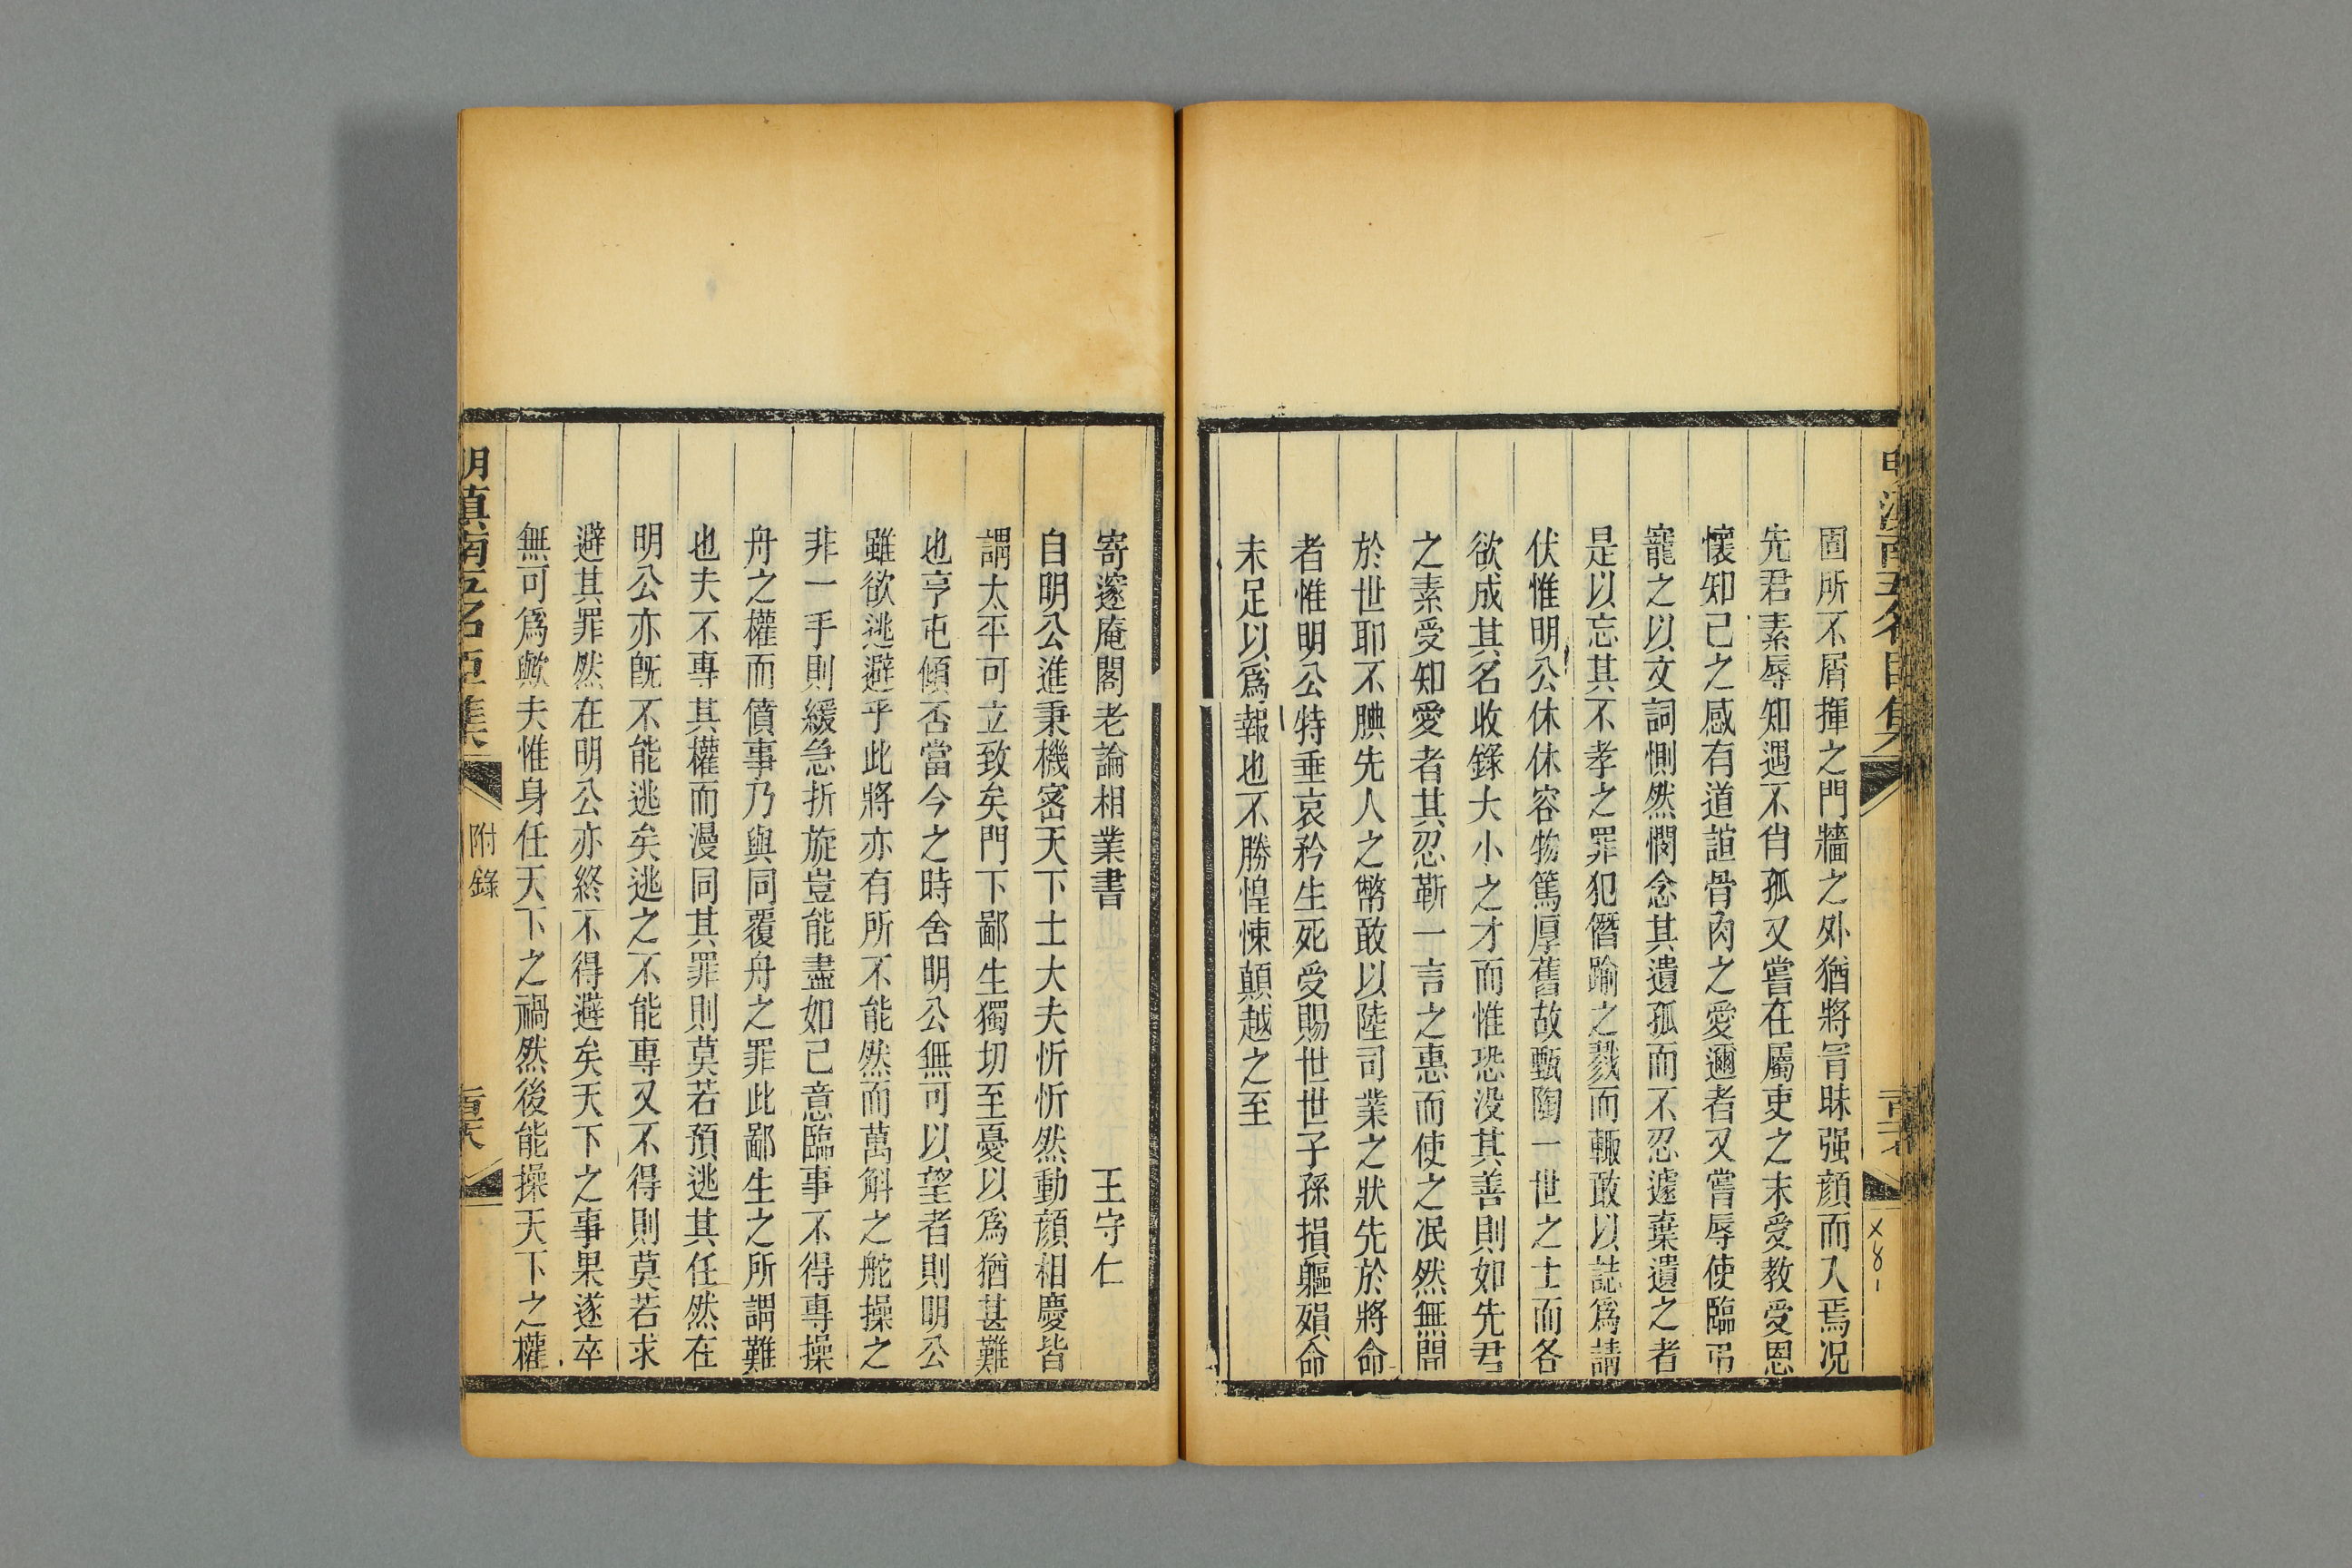 固所不屑揮之門牆之外猶將冒昧强顔而入焉況
先君素辱知遇不肖孤又嘗在屬吏之末愛教受恩
懷知己之感有道誼骨肉之愛邇者又嘗辱使臨弔
寵之以文詞惻然憫念其遺孤而不忍遽棄遺之者
是以忘其不孝之罪犯僭踰之戮而輒敢以誌爲請
伏惟明公休休容物篤厚舊故甄陶一世之士而各
欲成其名收錄大小之才而惟恐没其善則如先君
之素受知愛者其忍靳一言之惠而使之泯然無聞
於世耶不腆先人之幣敢以陸司業之狀先於將命
者惟明公特垂哀矜生死受賜世世子孫損軀殞命
未足以爲報也不勝惶悚顛越之至
寄邃庵閣老論相業書 王守仁
自明公進秉機宻天下士大夫忻忻然動顔相慶皆
謂太平可立致矣門下鄙生獨切至憂以爲猶甚難
也亨屯傾否當今之時舍明公無可以望者則明公
雖欲逃避乎此將亦有所不能然而萬斛之舵操之
非一手則緩急折旋豈能盡如己意臨事不得專操
舟之權而僨事乃與同覆舟之罪此鄙生之所謂難
也夫不專其權而漫同其罪則莫若預逃其任然在
明公亦旣不能逃矣逃之不能專又不得則莫若求
避其罪然在明公亦終不得避矣天下之事果遂卒
無可爲歟夫惟身任天下之禍然後能操天下之權
附錄